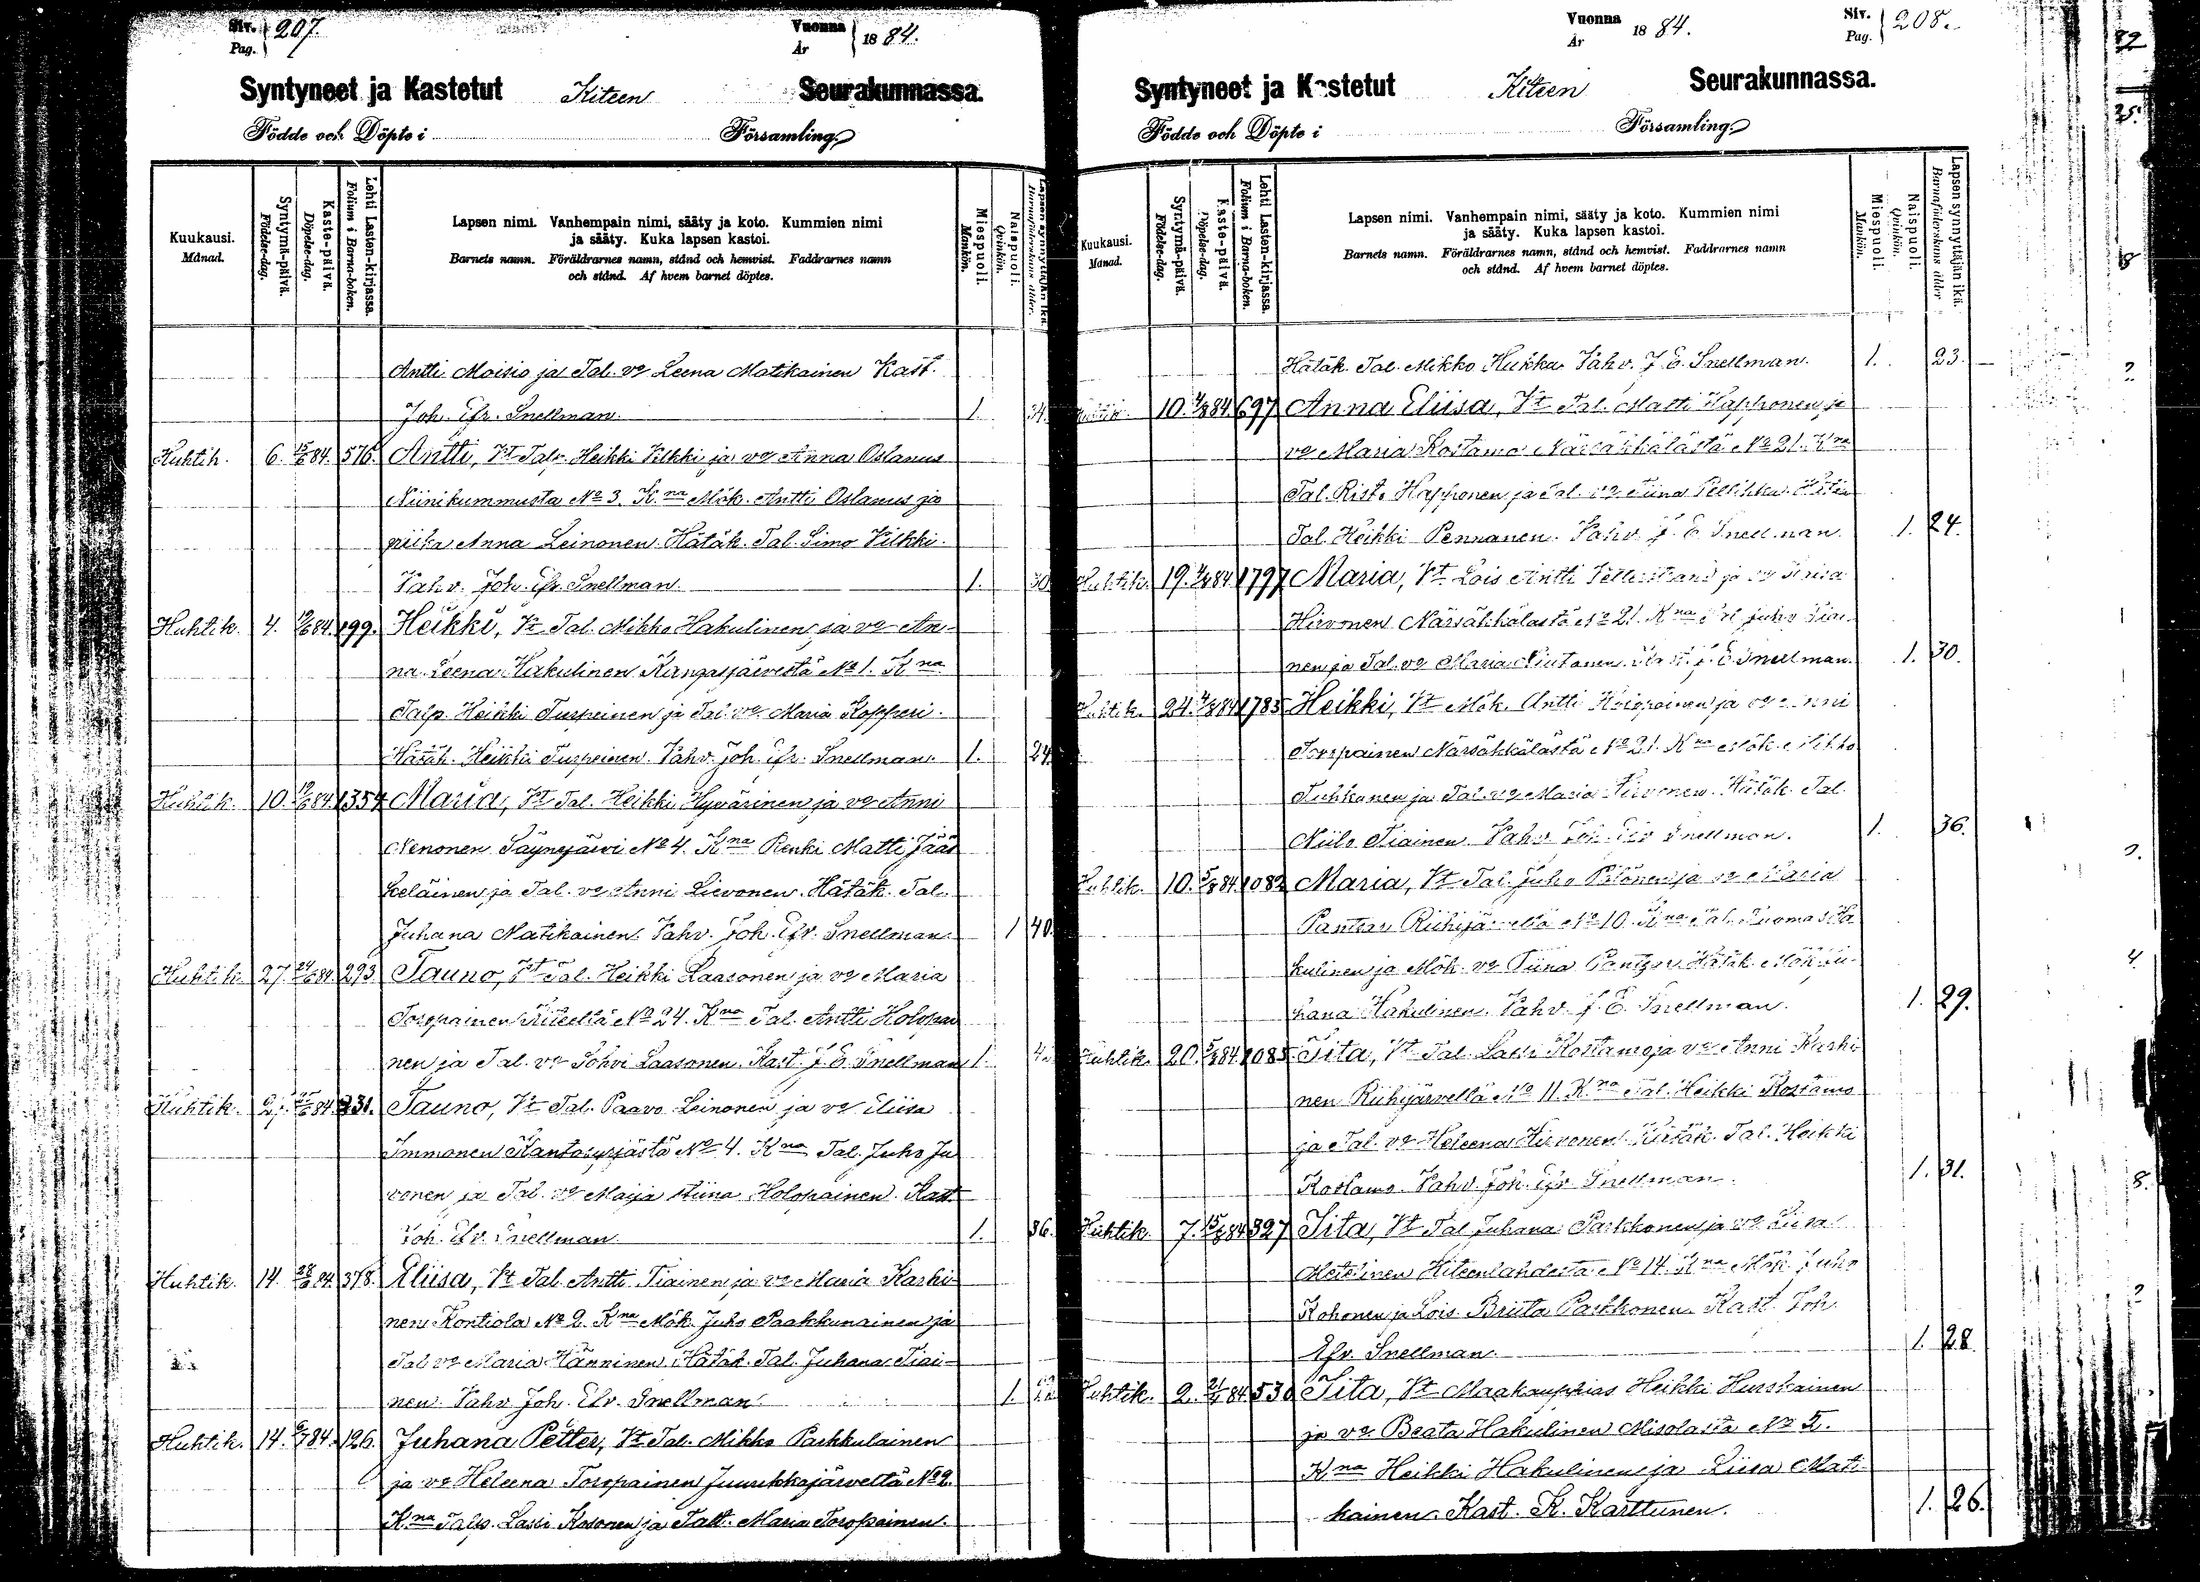 Siv. Pag. 207.
Vuonna År 1884.
Syntyneet ja Kastetut Kiteen Seurakunnassa.
Födde och Döpte i Församling
Kuukausi. Månad.
Syntymä-päivä. Födelse-dag.
Kaste-päivä. Döpelse-dag.
Lehti Lasten-kirjassa. Folium i Barna-boken.
Lapsen nimi. Vanhempain nimi, sääty ja koto. Kummien nimi
ja sääty. Kuka lapsen kastoi.
Barnets namn. Föräldrarnes namn, stånd och hemvist. Faddrarnes namn
och stånd. Af hvem barnet döptes.
Miespuoli. Mankön.
Naispuoli. Qvinkön.
Lapsen synnyttäjän ikä. Barnaföderskans ålder.
Antti Moisio ja Tal. vo Leena Matikainen Kast.
Joh. Efr. Snellman. 1. 34.
Huhtik. 6. 84. 576. Antti, Vt Talp. Heikki Vilkki ja vo Anna Oslanus
Niinikummusta No 3. Kna Mök. Antti Oslanus ja
piika Anna Leinonen. Hätäk. Tal. Simo Vilkki.
Vahv. Joh. Efr. Snellman. 1. 30
Huhtik. 4. 84. 199. Heikki, Vt Tal. Mikko Hakulinen ja vo An-
na Leena Hakulinen Kangasjärvestä No 1. Kna
Talp. Heikki Turpeinen ja Tal. vo Maria Kopperi.
Hätäk. Heikki Turpeinen. Vahv. Joh. Efr. Snellman. 1. 24.
Huhtik. 10. 84 1354 Maria, Vt Tal. Heikki Hyvärinen ja vo Anni
Nenonen Säynejärvi No 4. Kna Renki Matti Jääs
keläinen ja Tal. vo Anni Lievonen. Hätäk. Tal.
Juhana Matikainen. Vahv. Joh. Efr. Snellman. 1 40.
Huhtik. 27. 84. 293 Tauno, Vt Tal. Heikki Laasonen ja vo Maria
Toropainen Kiteeltä No 24. Kna Tal. Antti Holopai
nen ja Tal. vo Sohvi Laasonen. Kast. J. E. Snellman 1.
Huhtik. 84 231. Tauno, Vt Tal. Paavo Leinonen ja vo Eliisa
Immonen Kantosyrjästä No 4. Kna Tal. Juho Ju
vonen ja Tal. vo Maija Stiina Holopainen. Kast
Joh. Efr. Snellman. 1. 36.
Huhtik. 14. 84. 378. Eliisa, Vt Tal. Antti Tiainen ja vo Maria Karhi-
nen Kontiola No 2. Kna Mök. Juho Paakkunainen ja
Tal vo Maria Hänninen. Hätäk. Tal. Juhana Tiai-
nen. Vahv. Joh. Efr. Snellman. 1.
Huhtik. 14. 84. 126. Juhana Petter, Vt Tal. Mikko Parkkulainen
ja vo Heleena Toropainen Juurikkajärveltä No 2.
Kna Talp. Lassi Kosonen ja Talt. Maria Toropainen.
Vuonna År 1884.
Siv. Pag. 208.
Syntyneet ja Kastetut Kiteen Seurakunnassa.
Födde och Döpte i Församling
Kuukausi. Månad.
Syntymä-päivä. Födelse-dag.
Kaste-päivä. Döpelse-dag.
Lehti Lasten-kirjassa. Folium i Barna-boken.
Lapsen nimi. Vanhempain nimi, sääty ja koto. Kummien nimi
ja sääty. Kuka lapsen kastoi.
Barnets namn. Föräldrarnes namn, stånd och hemvist. Faddrarnes namn
och stånd. Af hvem barnet döptes.
Miespuoli. Mankön.
Naispuoli. Qvinkön.
Lapsen synnyttäjän ikä. Barnaföderskans ålder
Hätäk. Tal. Mikko Kukka. Vahv. J. E. Snellman. 1. 23.
10. 84 697 Anna Eliisa, Vt Tal. Matti Happonen ja
vo Maria Kostamo Närsäkkälästä No 21. Kna
Tal. Risto Happonen ja Tal. vo Tiina Pellikka. Hätäk
Tal. Heikki Pennanen. Vahv. J. E. Snellman. 1. 24.
Huhtik. 19. 84 1797 Maria, Vt Lois Antti ja vo
Hirvonen Närsäkkälästä No 21. Kna Juho Tiai-
nen ja Tal. vo Maria J. E. Snellman. 1. 30.
Huhtik. 24. 84 1785 Heikki, Vt Mök. Antti ja vo Anni
Toropainen Närsäkkälästä No 21. Kna Mök. Mikko
Tuhkanen ja Tal. vo Maria Hirvonen. Hätäk. Tal.
Niilo Tiainen. Vahv. Joh. Efr. Snellman. 1. 36.
Huhtik. 10. 84 1082 Maria, Vt Tal. Juho ja vo Maria
Pantzar Riihijärveltä No 10. Kna Tal. Tuomas Ha
kulinen ja Mök. vo Tiina Pantzar Hätäk. Mök Ju-
hana Hakulinen. Vahv. J. E. Snellman. 1. 29.
Huhtik. 20. 84. 1085 Iita, Vt Tal. Lassi Kostamo ja vo Anni Karhi-
nen Riihijärveltä No 11. Kna Tal. Heikki Kostamo
ja Tal. vo Heleena Hirvonen. Hätäk. Tal. Heikki
Kostamo. Vahv. Joh. Efr. Snellman. 1. 31.
Huhtik. 7. 84 327 Iita, Vt Tal Juhana Parkkonen ja vo Liisa
Kiteenlahdesta No 14. Kna Mök Juho
Kohonen ja Lois. Briita Parkkonen. Kast. Joh.
Efr. Snellman. 1. 28.
Huhtik. 2. 84 530 Iita, Vt Maakauppias Heikki Hurskainen
ja vo Beata Hakulinen Misolasta No 5.
Kna Heikki Hakulinen ja Liisa Mati
kainen. Kast. K. Karttunen. 1. 26.